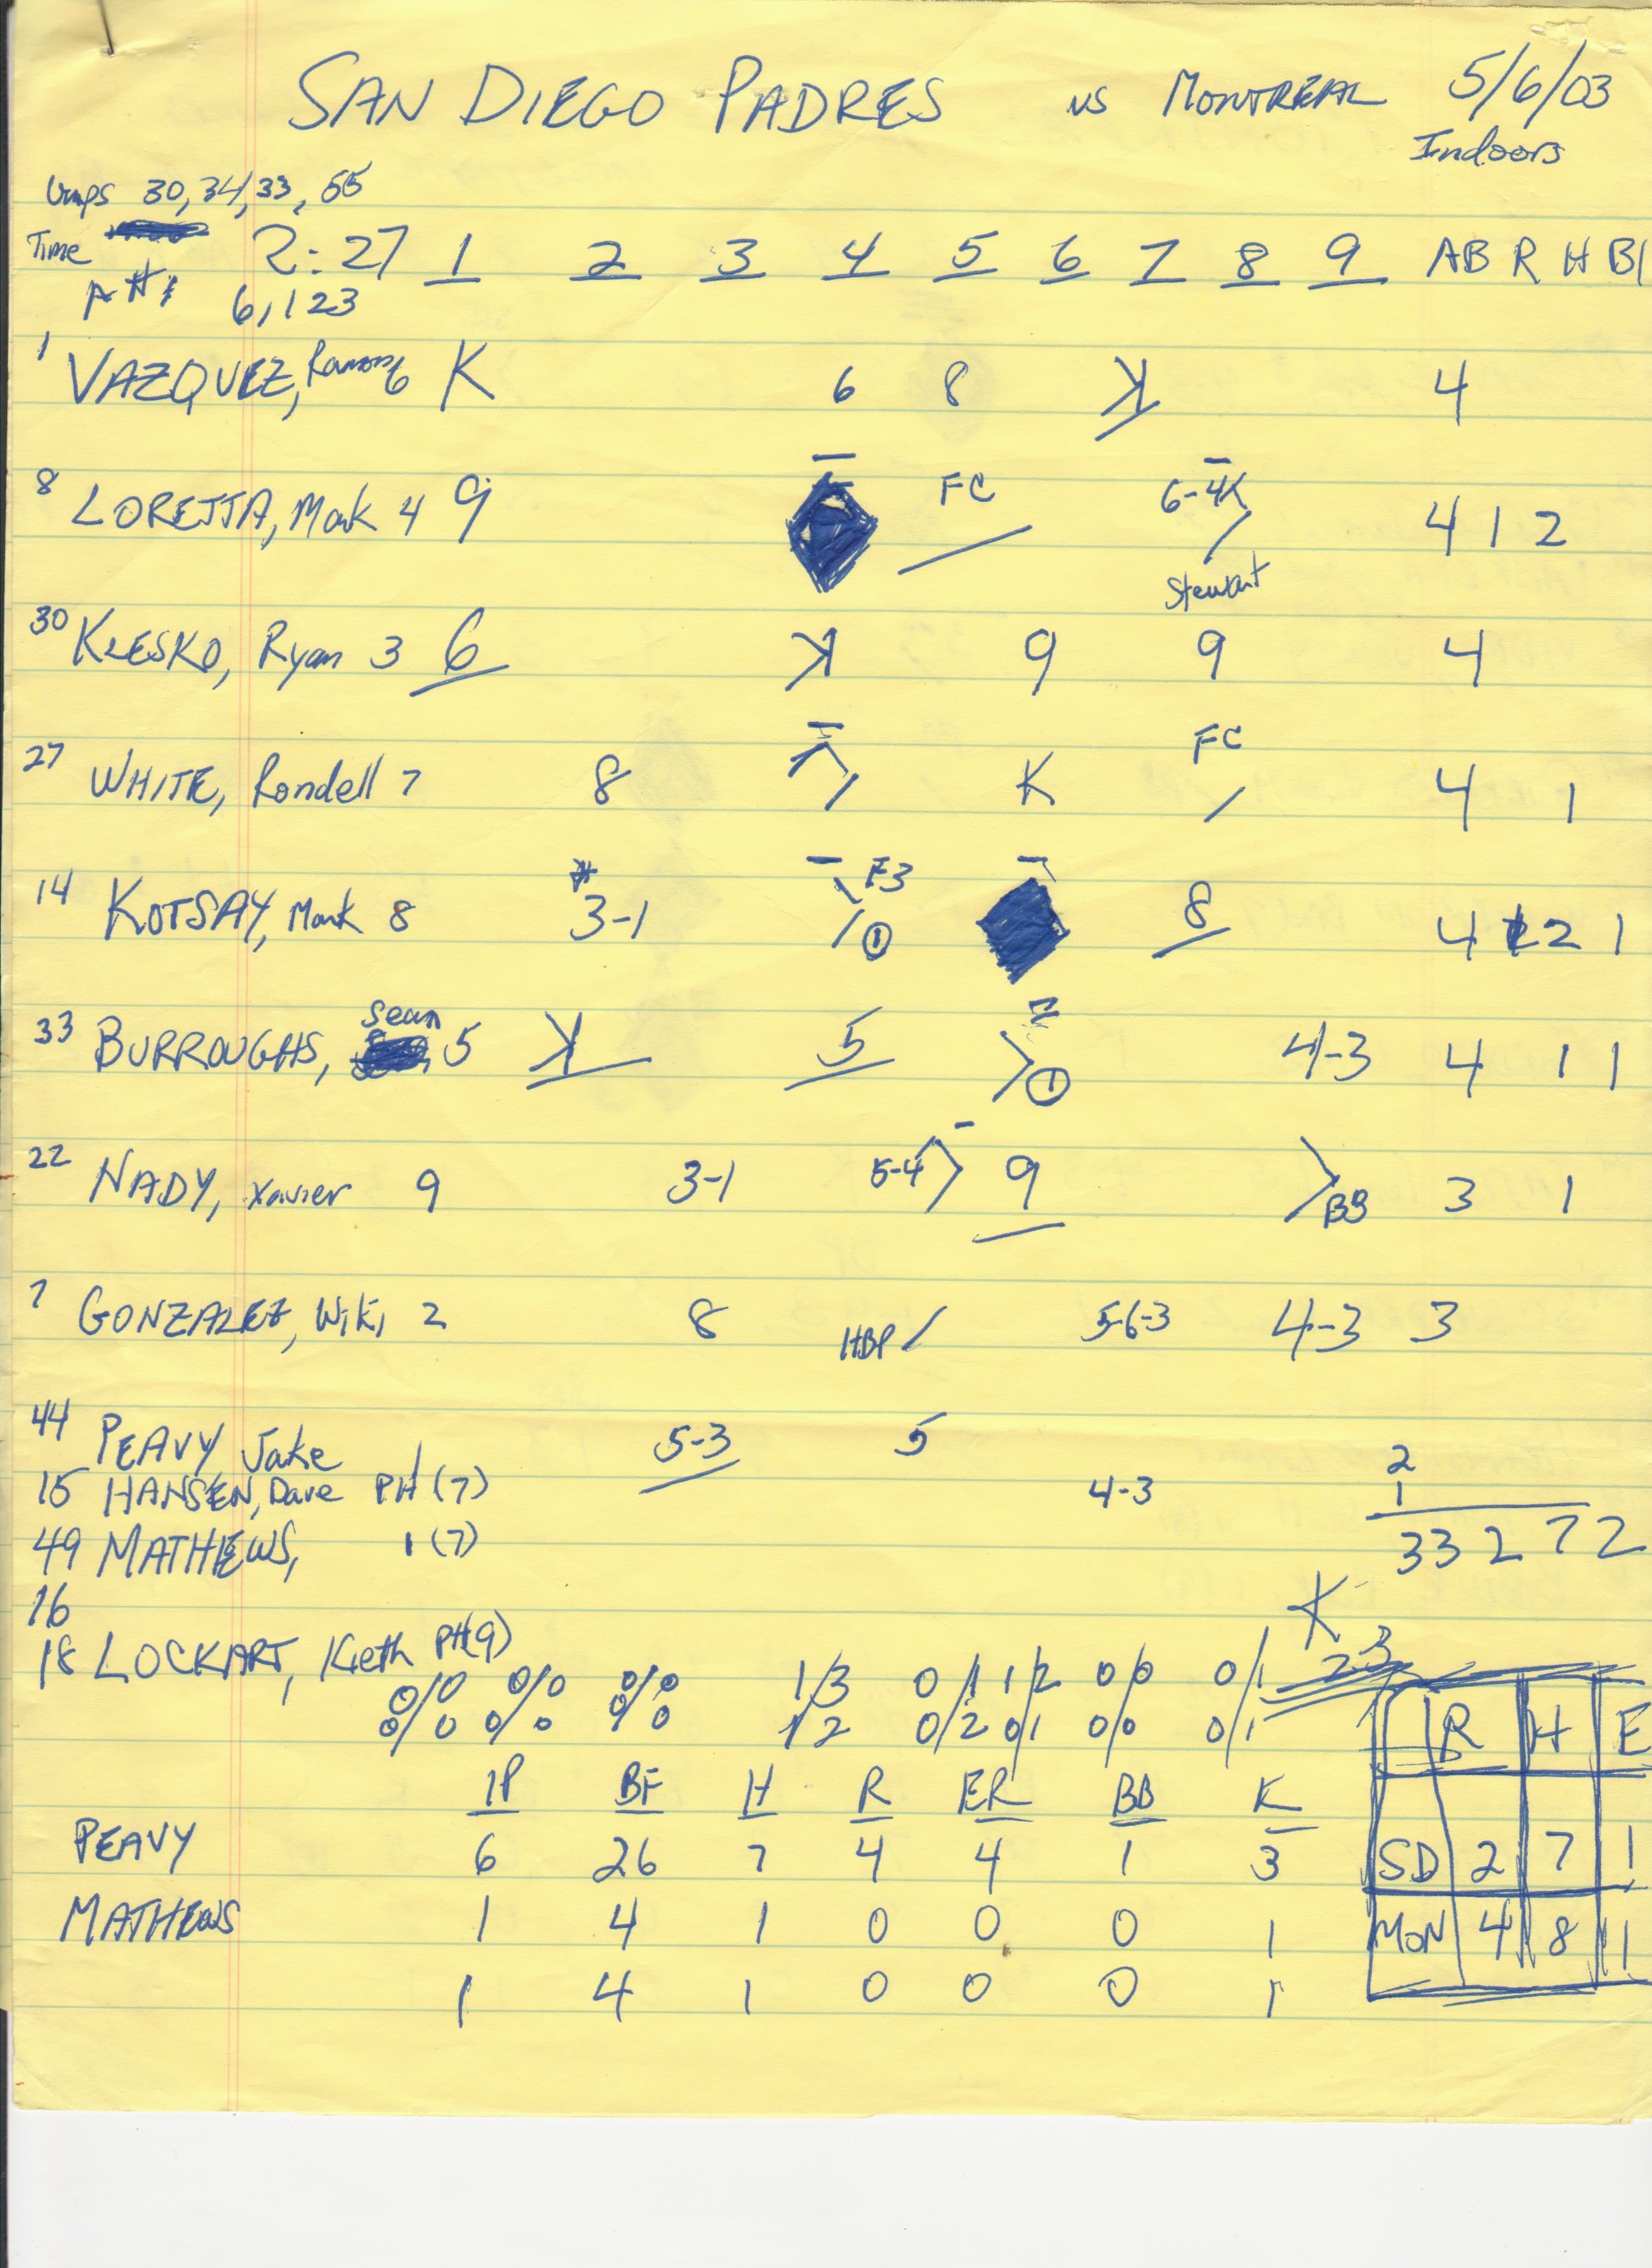 SAN DIEGO PADRES vs MONTREAL 5/6/03
Indoors
Umps 30, 34, 33, 55
Time 2:27 1 2 3 4 5 6 7 8 9 AB R H BI
6,123
1 VAZQUEZ, Ramon 6 K 6 8 K 4
8 LORETTA, Mark 4 9 FC 6-4 4 1 2
Stewart
30 KLESKO, Ryan 3 6 K 9 9 4
27 WHITE, Rondell 7 8 K FC 4 1
14 KOTSAY, Mark 8 3-1 E3 1 8 4 1 2 1
33 BURROUGHS, Sean 5 K 5 1 4-3 4 1 1
22 NADY, Xavier 9 3-1 5-4 9 BB 3 1
7 GONZALEZ, Wiki 2 8 HBP 5-6-3 4-3 3
44 PEAVY Jake 5-3 5 2
15 HANSEN, Dave PH (7) 4-3 1
49 MATHEWS, 1 (7) 33 2 7 2
16
18 LOCKART, Kieth PH(9) K
0/0 0/0 0/0 1/3 0/1 1/2 0/0 0/1 23
0/0 0/0 0/0 1/2 0/2 0/1 0/0 0/1 R H E
IP BF H R ER BB K
PEAVY 6 26 7 4 4 1 3 SD 2 7 1
MATHEWS 1 4 1 0 0 0 1 MON 4 8 1
1 4 1 0 0 0 1